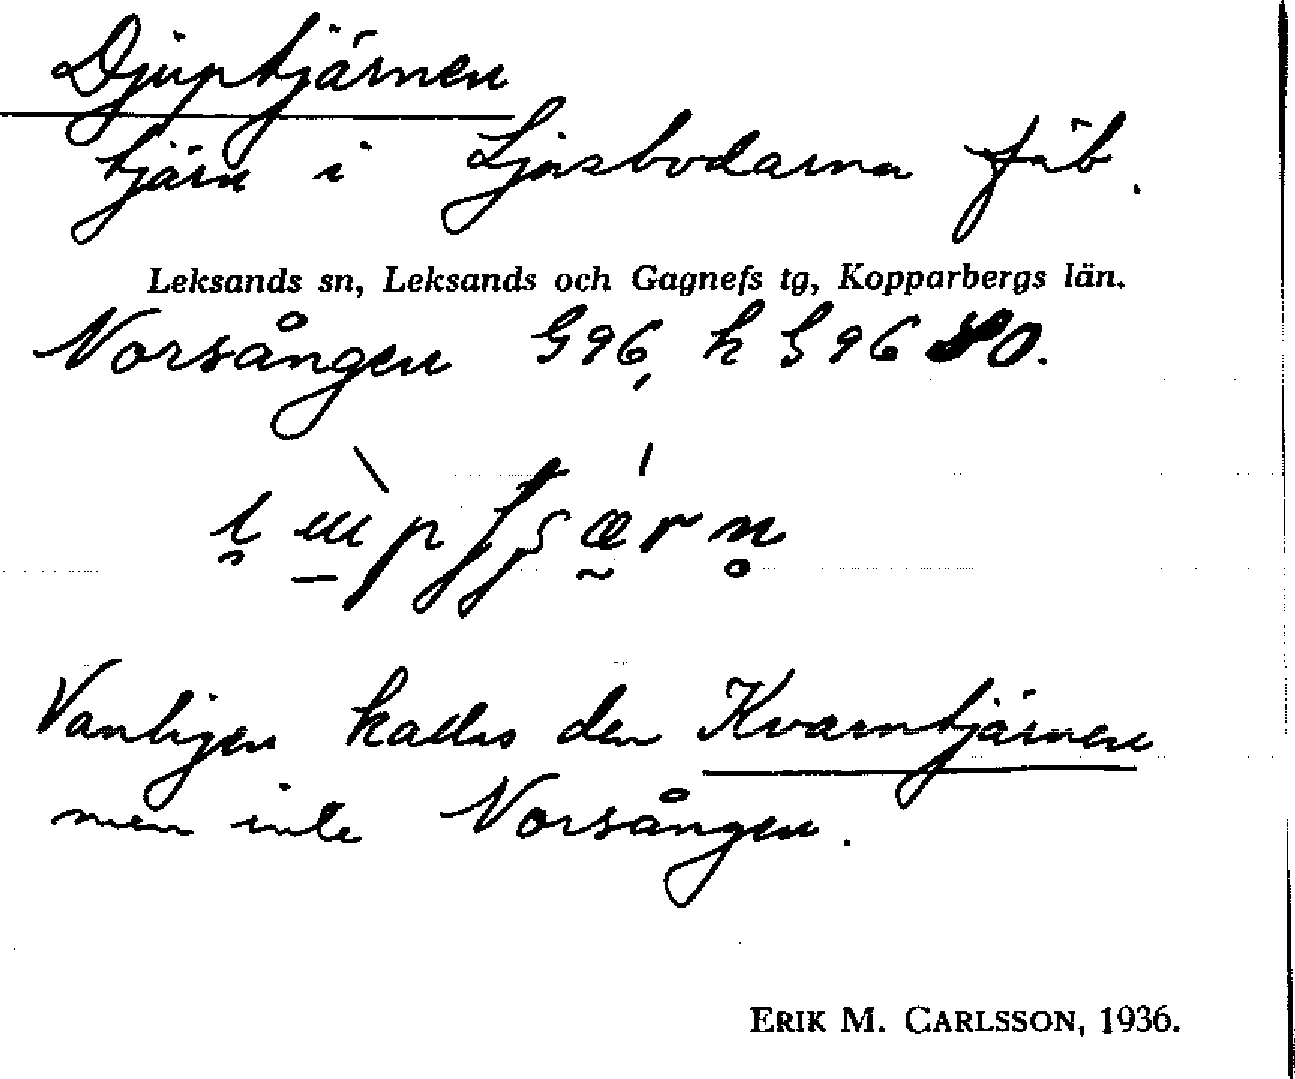 Djuptjärnen
tjärn i Ljusbodarna fäb.
Leksands sn, Leksands och Gagnefs tg, Kopparbergs län.
Norsången G96, h G96 80.
Vanligen kallas den Kvarntjärnen
men inte Norsången.
ERIK M. CARLSSON, 1936.